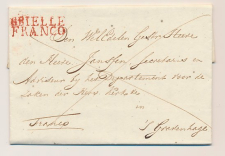 BRIELLE
FRANCO
Den WelEdelen Gestr. Heere
den Heere Janssen Secretaris en
bij het Departement voor de
Zaken der
in
Franco 's Gravenhage